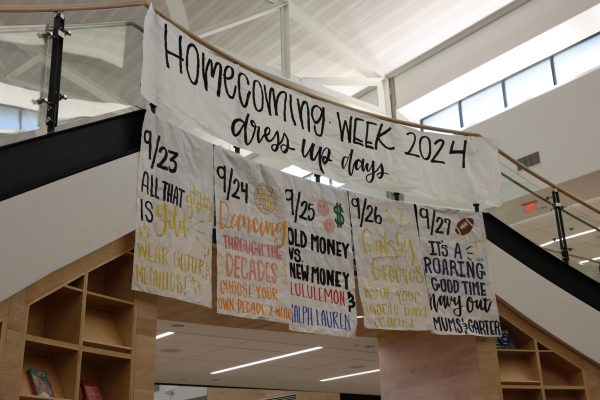 HOMECOMING WEEK 2024
dress up days
9/23
ALL THAT
IS gold
WEAR GLITTER
METALLICS!
9/24
Dancing
THROUGH THE
DECADES
CHOOSE YOUR
OWN DECADE 2 WEAR
9/25
$
OLD MONEY
VS.
NEW MONEY
LULULEMON
RALPH LAUREN
9/26
Gatsby
Grooves
WEAR YOUR
FAVORITE BAND
OR ARTIST
9/27
IT'S A
ROARING
GOOD TIME
Navy out
MUMS & GARTER